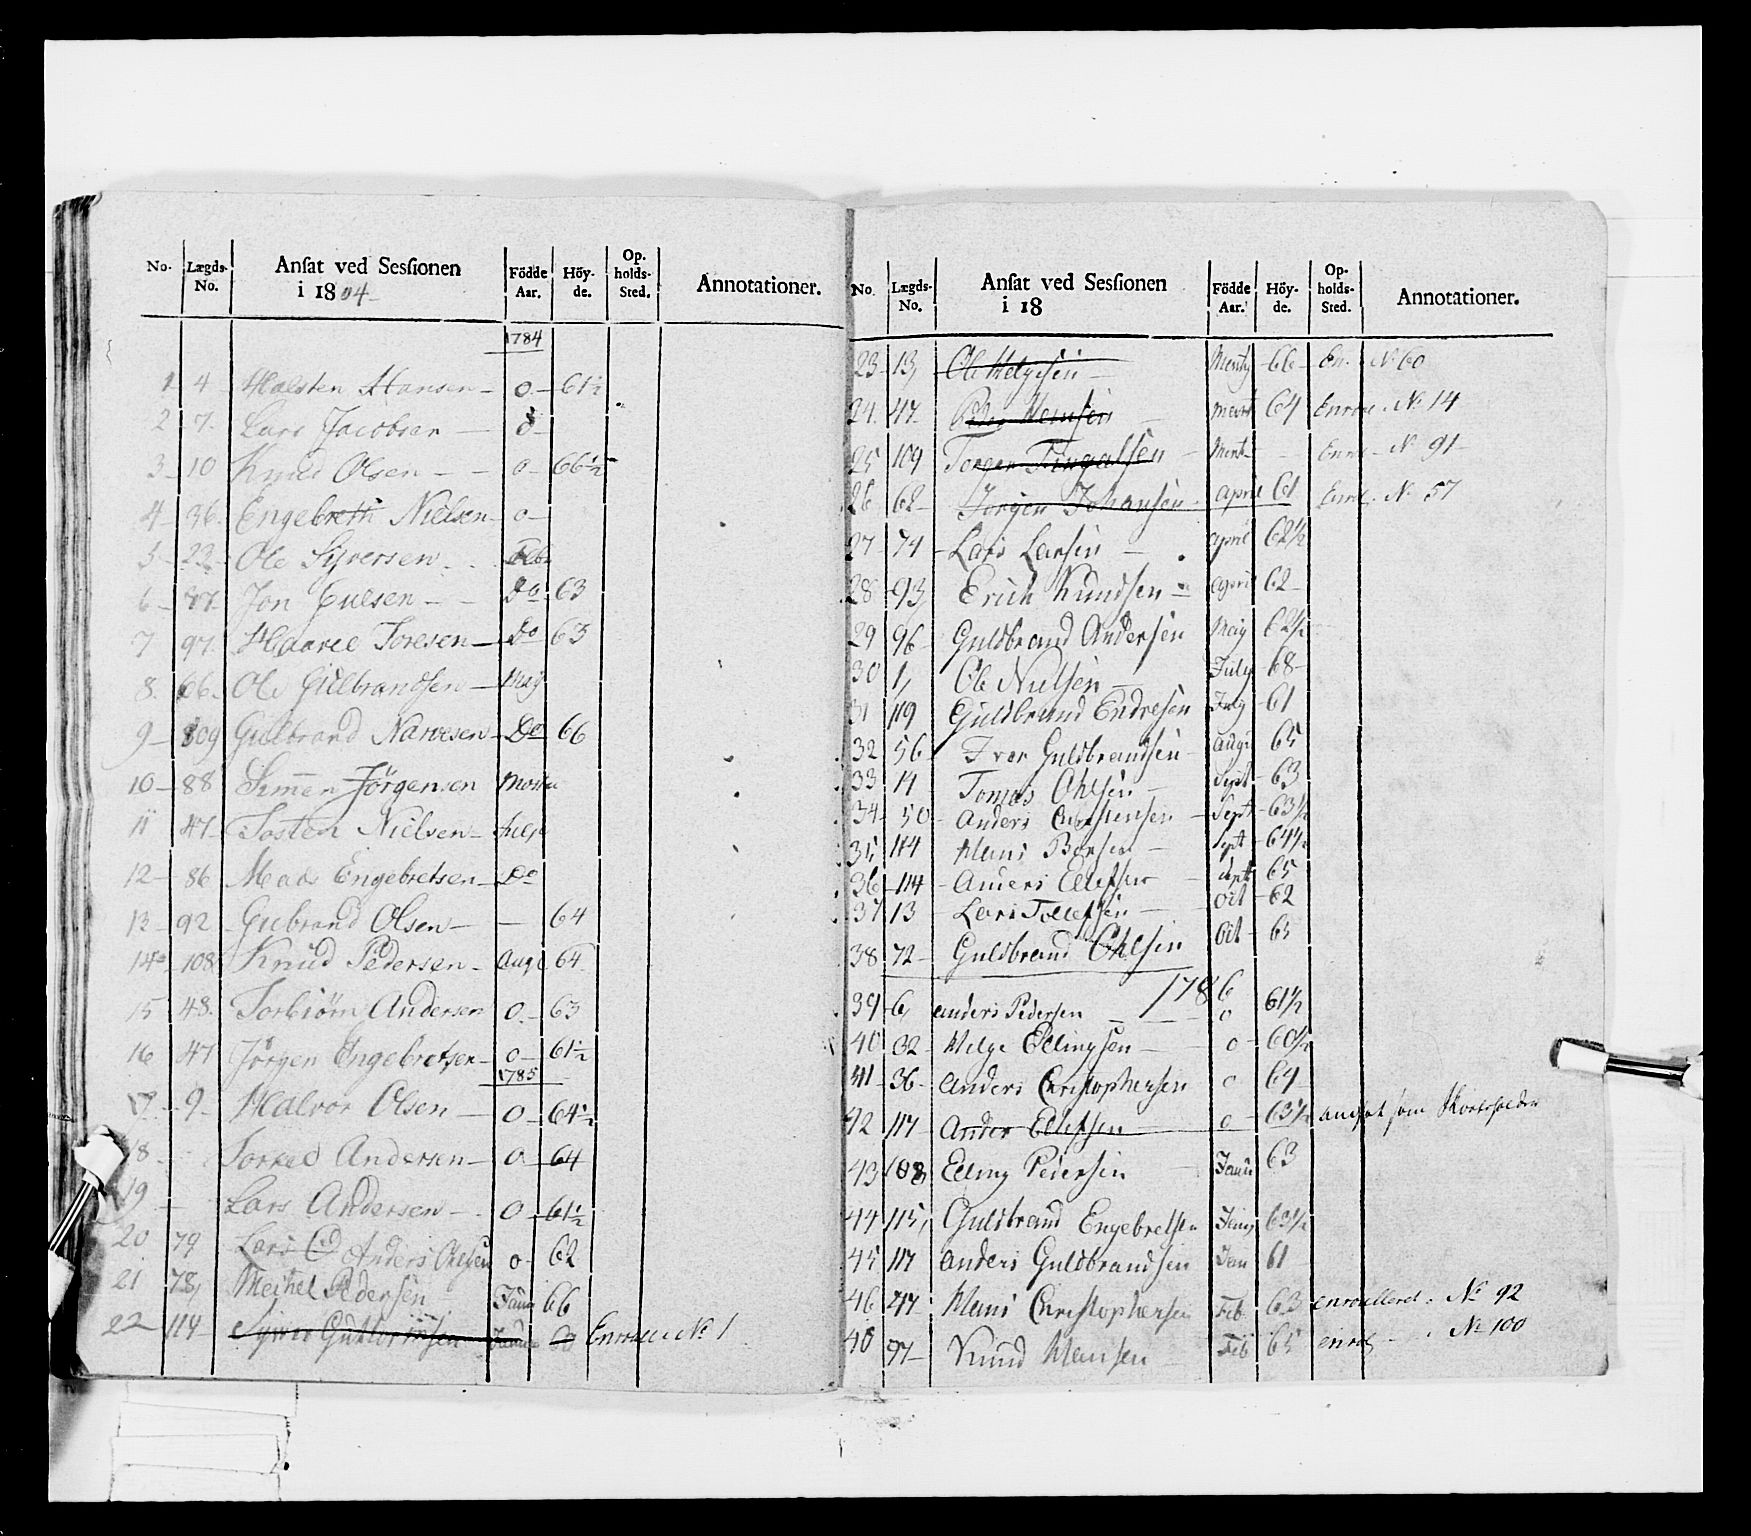 No. Lægds-No. Ansat ved Sessionen i 1804 Födde Aar. Höy-de. Op-holds-Sted. Annotationer.
1784
1 4 Halsten Hansen - 0 - 61½
2 7 Lars Jacobsen - 0 -
3 10 Knud Olsen - - 0 - 66½
4 36 Engebreth Nielsen 0 -
5 23 Ole Syversen Feb
6 Jon - - Do 63
7 97 Haavel Toresen - Do 63
8 66 Ole Gulbrandsen - May
9 109 Gulbrand Narvesen - Do 66
10 88 Simen Jörgensen
11 47 Tosten Nielsen -
12 86 Mads Engebretsen - Do
13 92 Gubrand Olsen - - 64
14 108 Knud Pedersen - Aug 64
15 48 Torbiörn Andersen 0 - 63
16 47 Jörgen Engebretsen - 0 - 61½
1785
17 9 Halvor Olsen - 0 - 64½
18 - Torkel Andersen - 0 64
19 - Lars Andersen - 0 - 61½
20 79 Lars Anders Ohlsen 0 - 62
21 78 Meikel Pedersen Janu 66
22 114 Syver Guttormsen Janu Enroll No 1
No. Lægds-No. Ansat ved Sessionen i 18 Födde Aar. Höy-de. Op-holds-Sted. Annotationer.
23 13 Ole Helgesen 66 En. No 60
24 47 Peder Hansen 64 Enroll. No 14
25 109 Torger - Enrol. No 91
26 62 Jörgen Johansen april 61 Enrol. No 57
27 74 Lars Larsen - april 62½
28 93 Erich Knudsen - april 62 -
29 96 Guldbrand Andersen May 62½
30 1 Ole Nielsen July 68 -
31 119 Guldbrand Endresen July 61
32 56 Iver Guldbrandsen Augu 65
33 14 Tomas Ohlsen Sept 63
34 50 Anders Christensen - Sept 63½
35 114 Hans - Sept 64½
36 114 Anders Ellefsen - Sept 65
37 13 Lars Tollefsen - Oct 62
38 72 Guldbrand Ohlsen Oct 63
1786
39 6 anders Pedersen - 0 61½
40 32 Helge Ellingsen - 0 - 60½
41 36 anders Christophersen 0 64
42 117 Ander Ellefsen 0 63½ ansat som
43 108 Elling Pedersen Janu 63
44 115 Guldbrand Engebretsen Janu 63½
45 117 anders Guldbrandsen Jan 61
46 47 Hans Christophersen Feb 63 enroulleret. No 92
48 97 Knud Hansen Feb 65 enrol - No 100